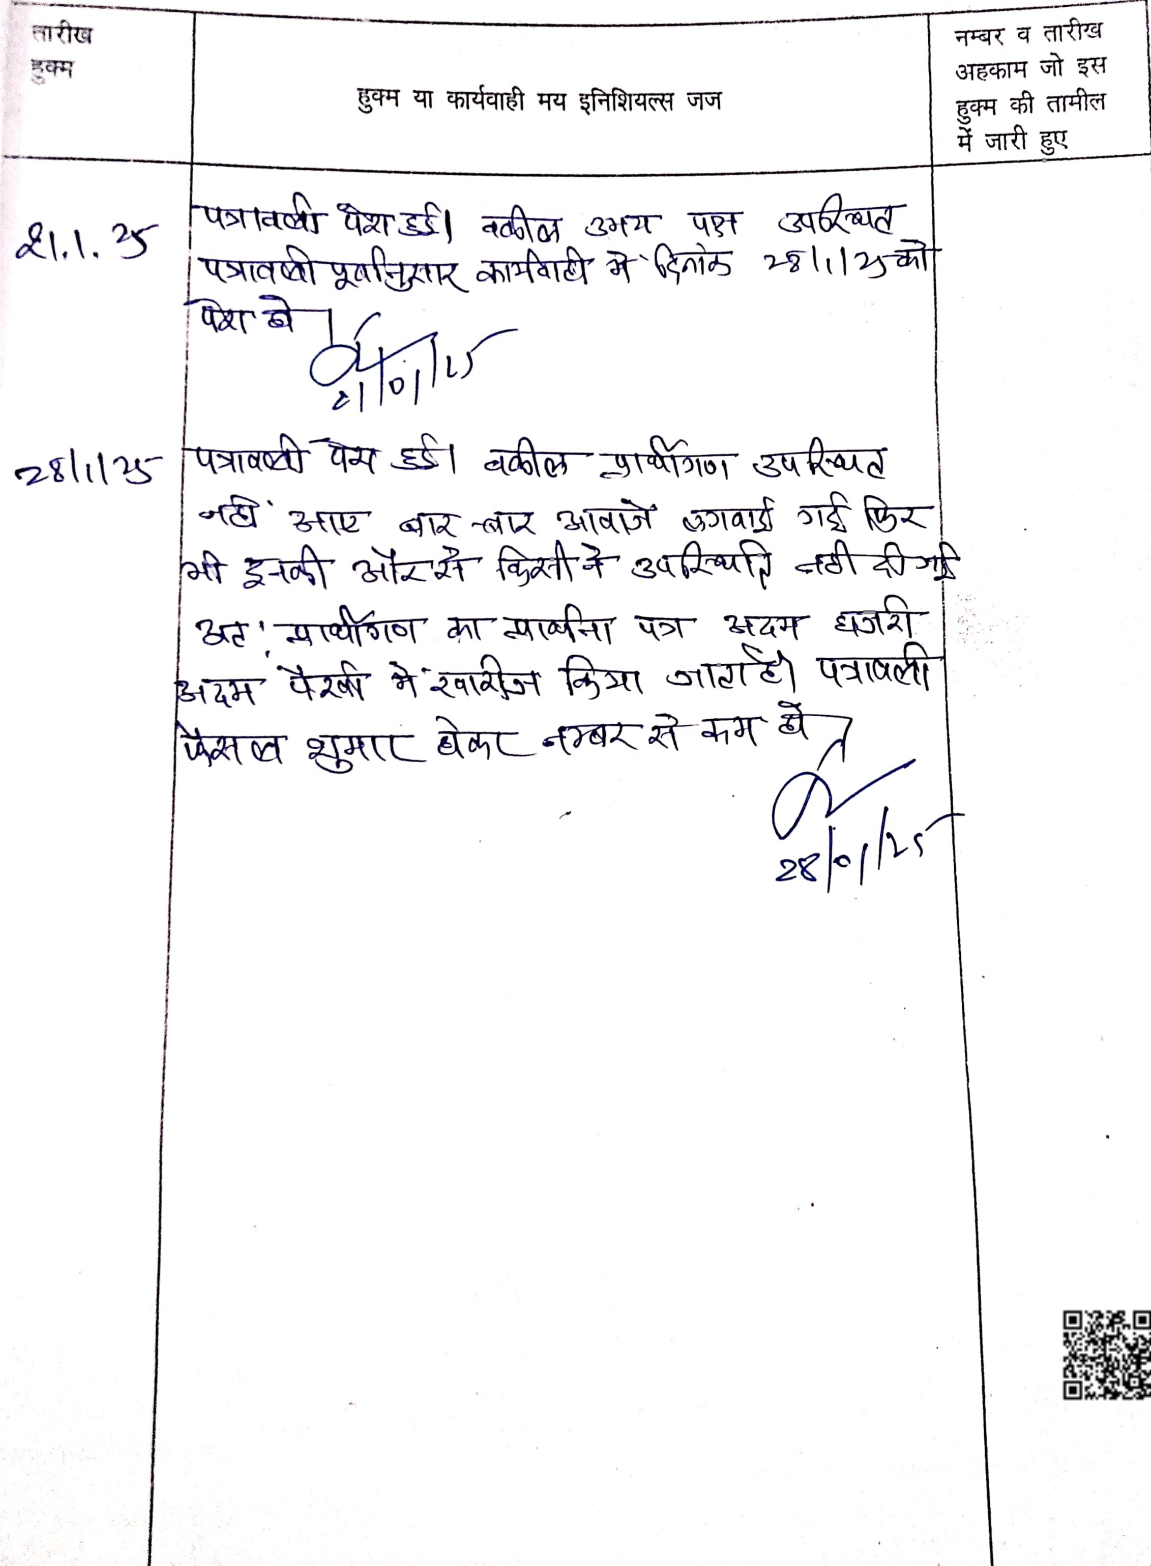 तारीख
हुक्म
हुक्म या कार्यवाही मय इनिशियल्स जज
नम्बर व तारीख
अहकाम जो इस
हुक्म की तामील
में जारी हुए
21.1.25
पत्रावली पेश हुई। वकील उभय पक्ष उपस्थित
पत्रावली पूर्वानुसार कार्यवाही में दिनांक 28/1/25 को
पेश हो
21/01/25
28/1/25
पत्रावली पेश हुई। वकील प्रार्थीगण उपस्थित
नहीं आए बार-बार आवाजें लगवाई गई फिर
भी इनकी ओर से किसी ने उपस्थिति नहीं दी गई
अतः प्रार्थीगण का प्रार्थना पत्र अदम हाजरी
अदम पैरवी में खारीज किया जाता है। पत्रावली
फैसल शुमार होकर नम्बर से कम हो
28/01/25